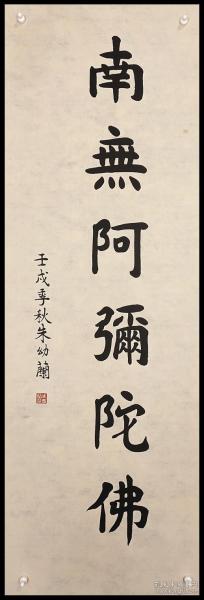 南無阿彌陀佛
壬戌季秋朱幼蘭